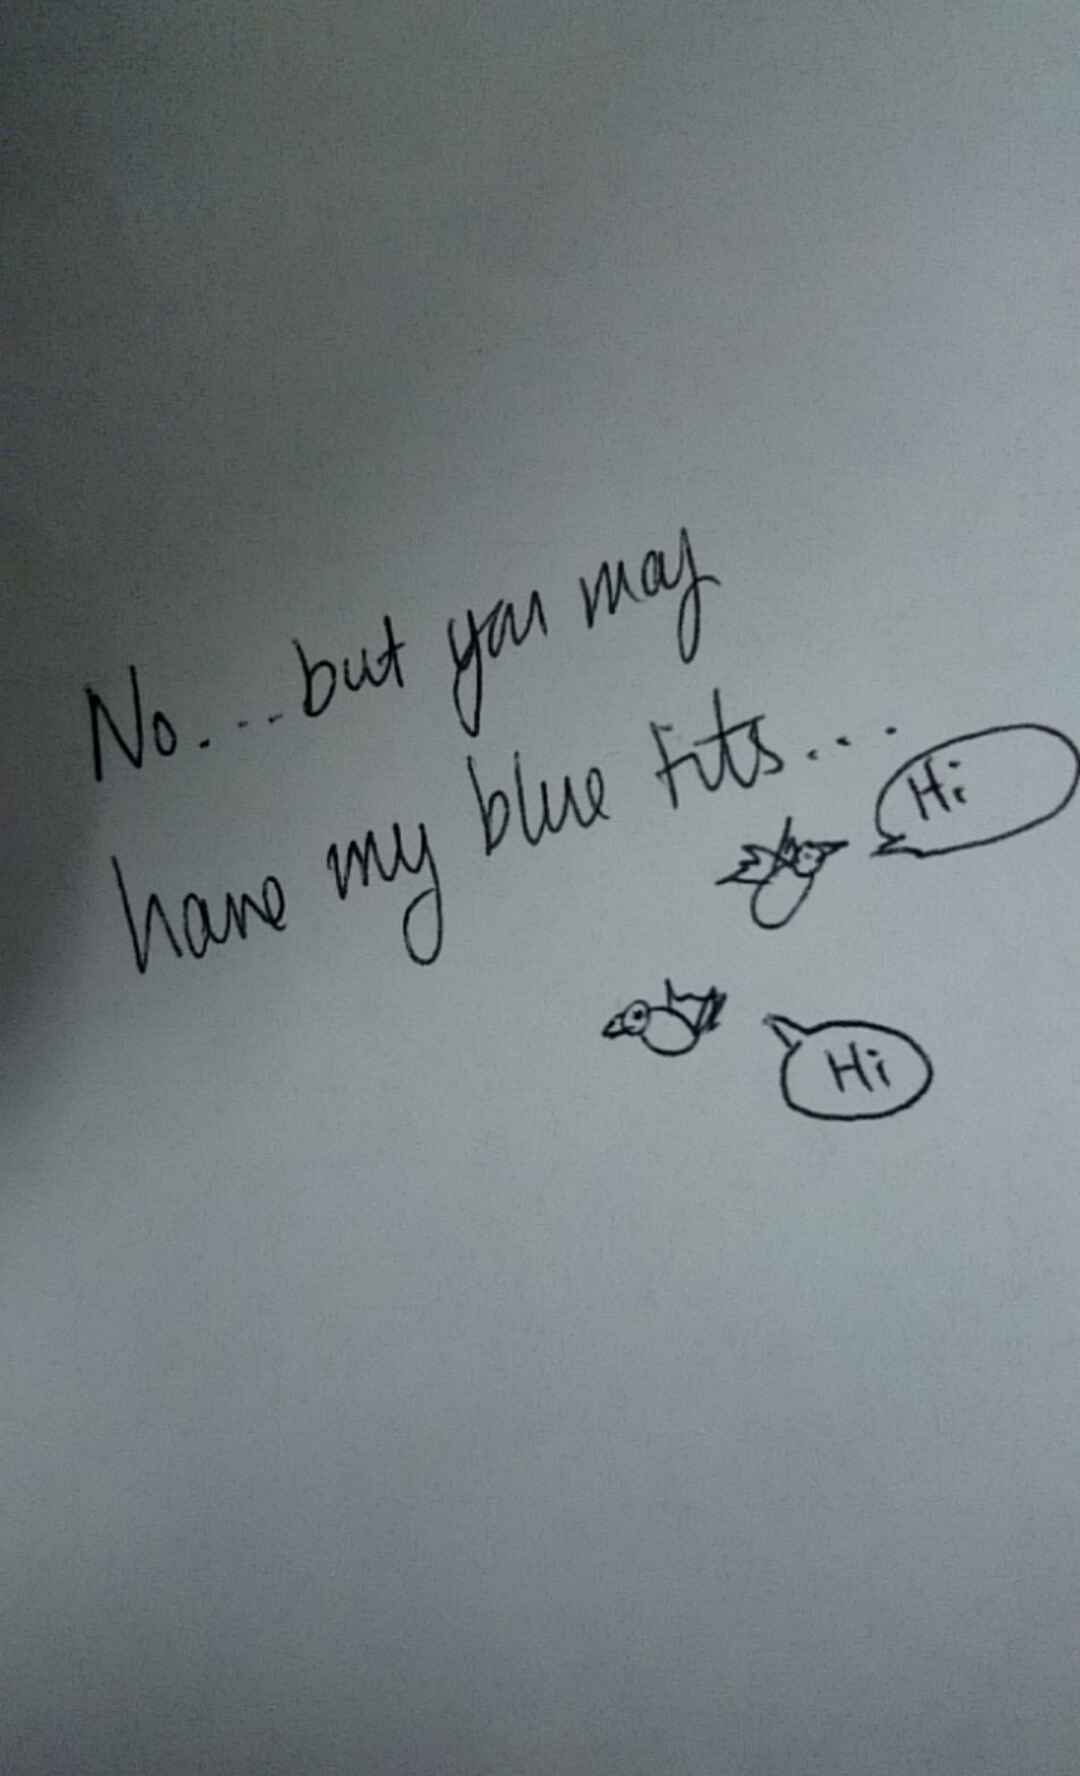 No....but you may
have my blue tits....
Hi
Hi